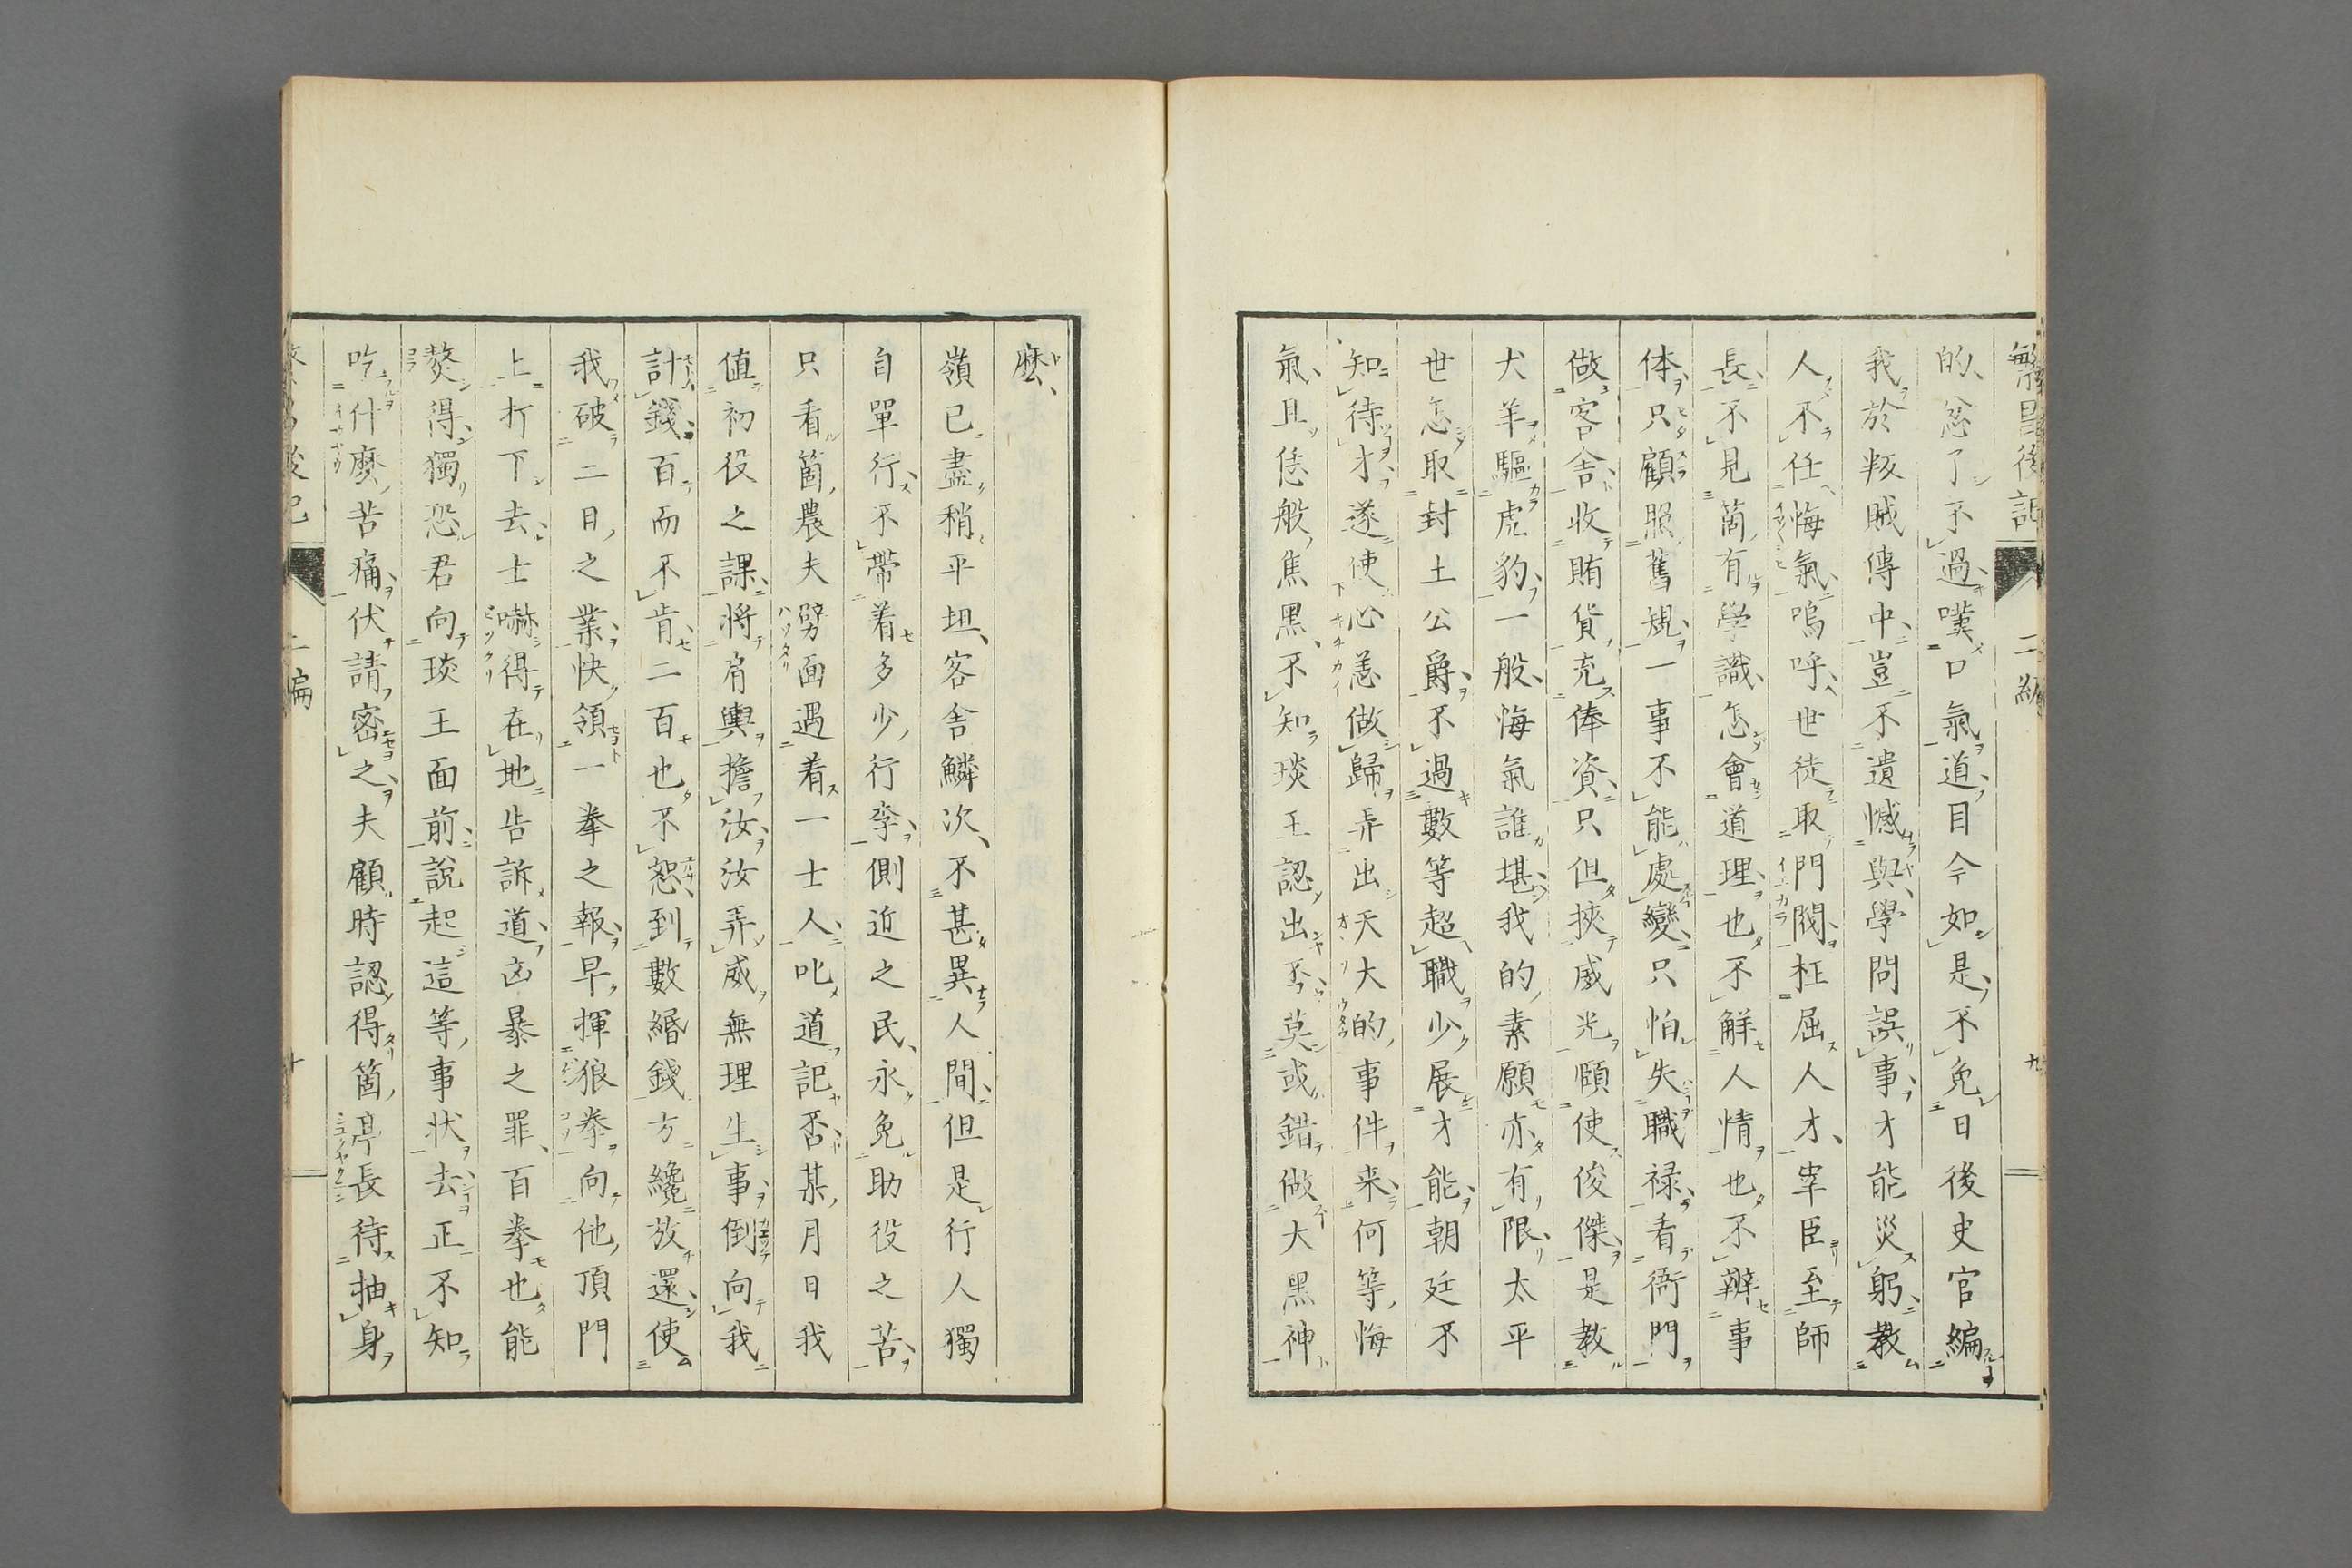 繁昌後記
二編
九
的忿了不過嘆口氣道目今如是不免日後史官編
我於叛賊傳中豈不遺憾與學問誤事才能災躬教
人不任悔氣嗚呼世徒取門閥枉屈人才宰臣至師
長不見箇有學識怎會道理也不解人情也不辨事
体只顧照舊規一事不能處變只怕失職禄看衙門
做客舎收賄貨充俸資只但挾威光頤使俊傑是教
犬羊驅虎豹一般悔氣誰堪我的素願亦有限太平
世怎取封土公爵不過數等超職少展才能朝廷不
知待才遂使心恙做歸弄出天大的事件来何等悔
氣且恁般焦黒不知琰王認出否莫或錯做大黒神
麽
嶺已盡稍平坦客舎鱗次不甚異人間但是行人獨
自單行不帶着多少行李側近之民永免助役之苦
只看箇農夫劈面遇着一士人叱道記否某月日我
値初役之課將肩輿擔汝汝弄威無理生事倒向我
計錢百而不肯二百也不恕到數緡錢方纔放還使
我破二日之業快領一拳之報早揮狼拳向他頂門
上打下去士嚇得在地告訴道凶暴之罪百拳也能
熬得獨恐君向琰王面前說起這等事状去正不知
吃什麽苦痛伏請密之夫顧時認得箇亭長待抽身
二編
十